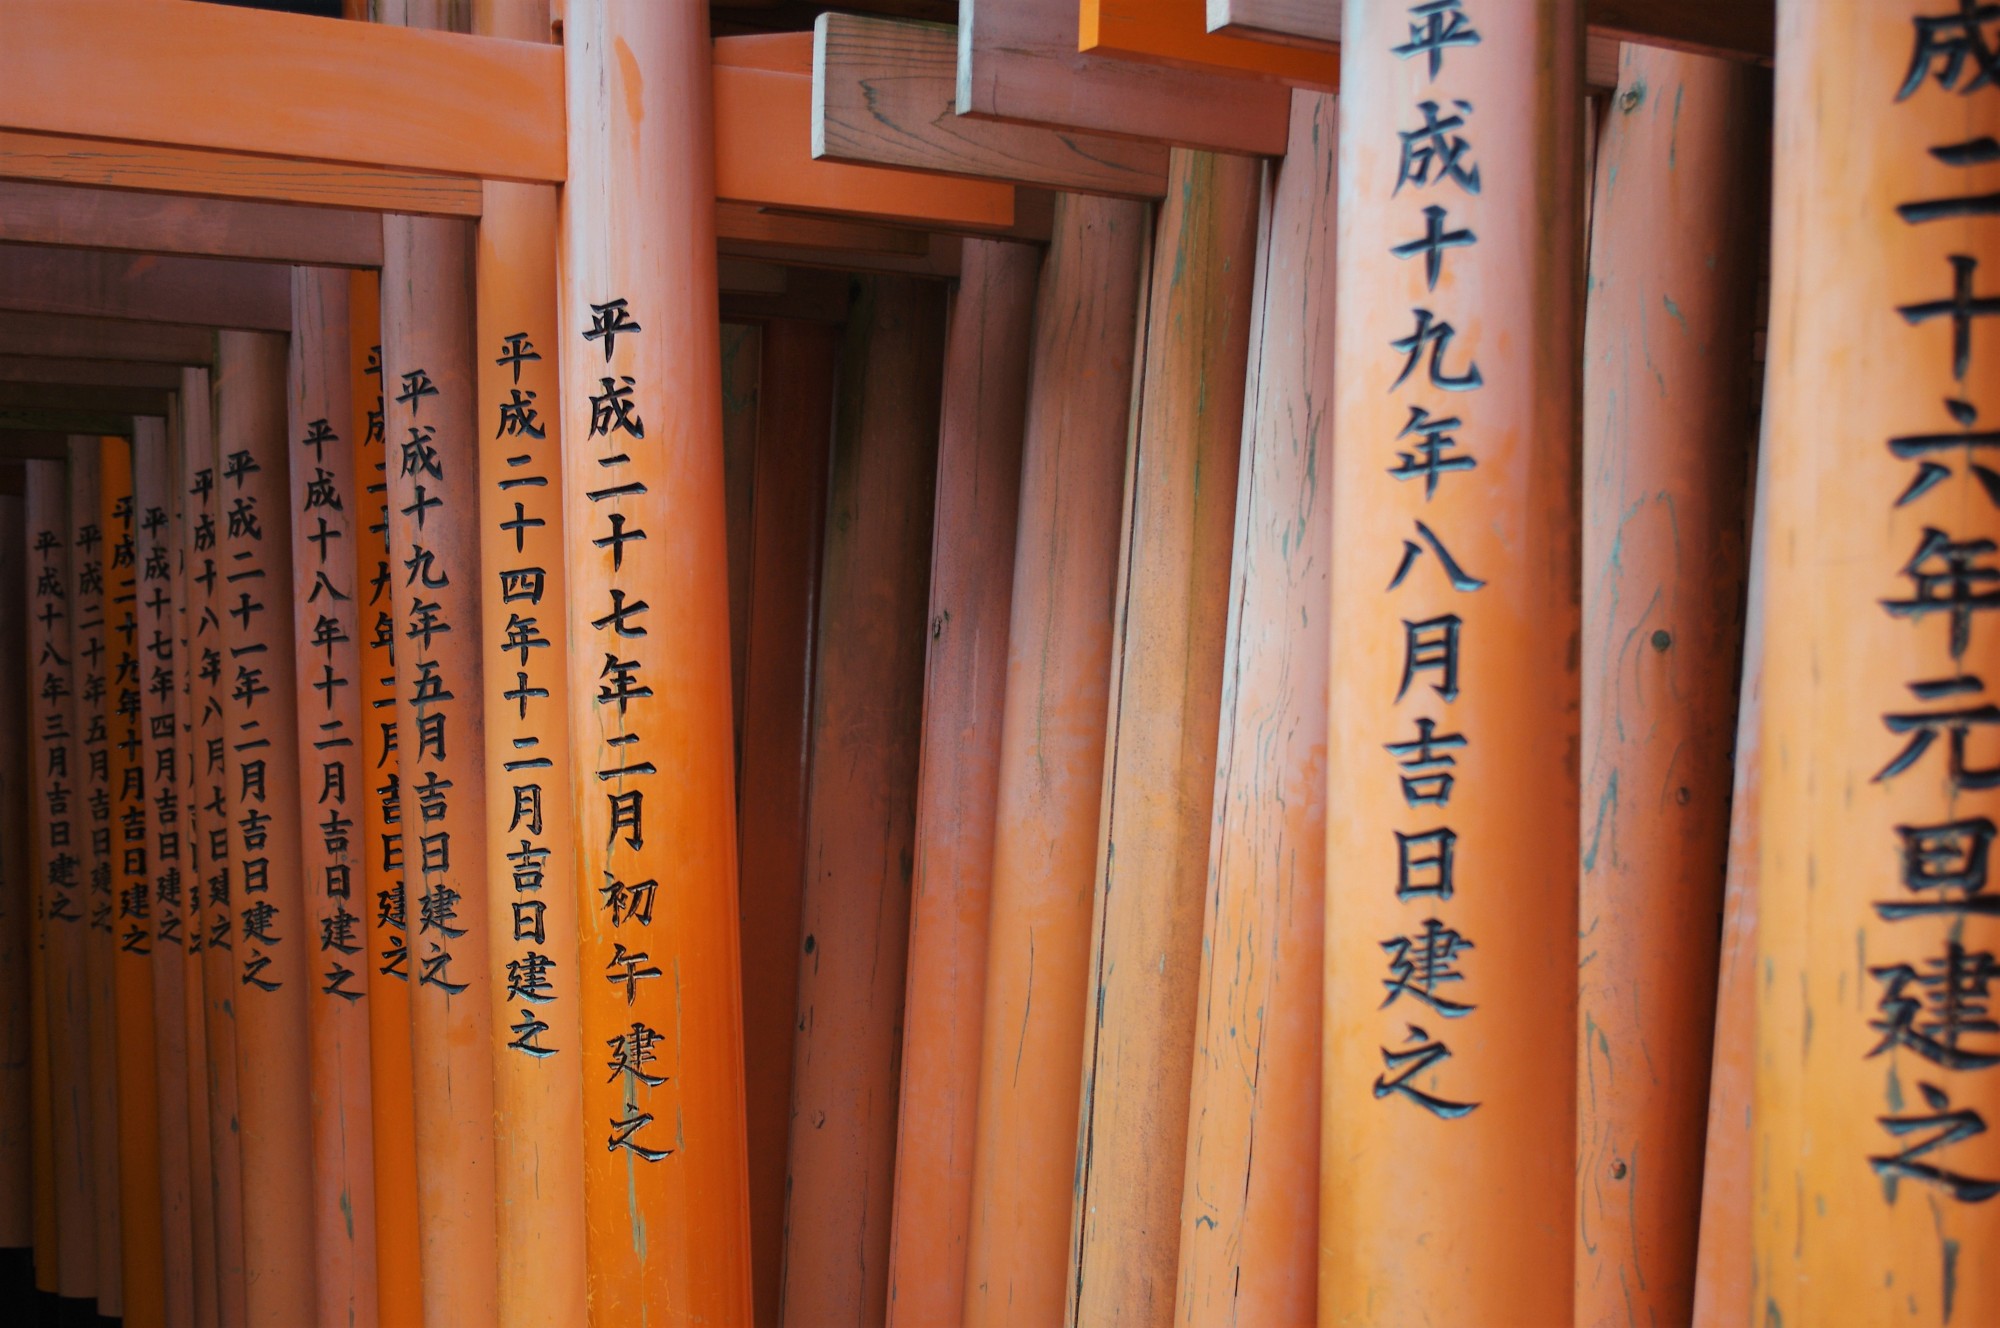 成二十六年元旦建之
平成十九年八月吉日建之
平成二十七年二月初午建之
平成二十四年十二月吉日建之
平成十九年五月吉日建之
平成二十九年二月吉日建之
平成十八年十二月吉日建之
平成二十一年二月吉日建之
平成十八年八月七日建之
平成十七年四月吉日建之
平成二十九年十月吉日建之
平成二十年五月吉日建之
平成十八年三月吉日建之